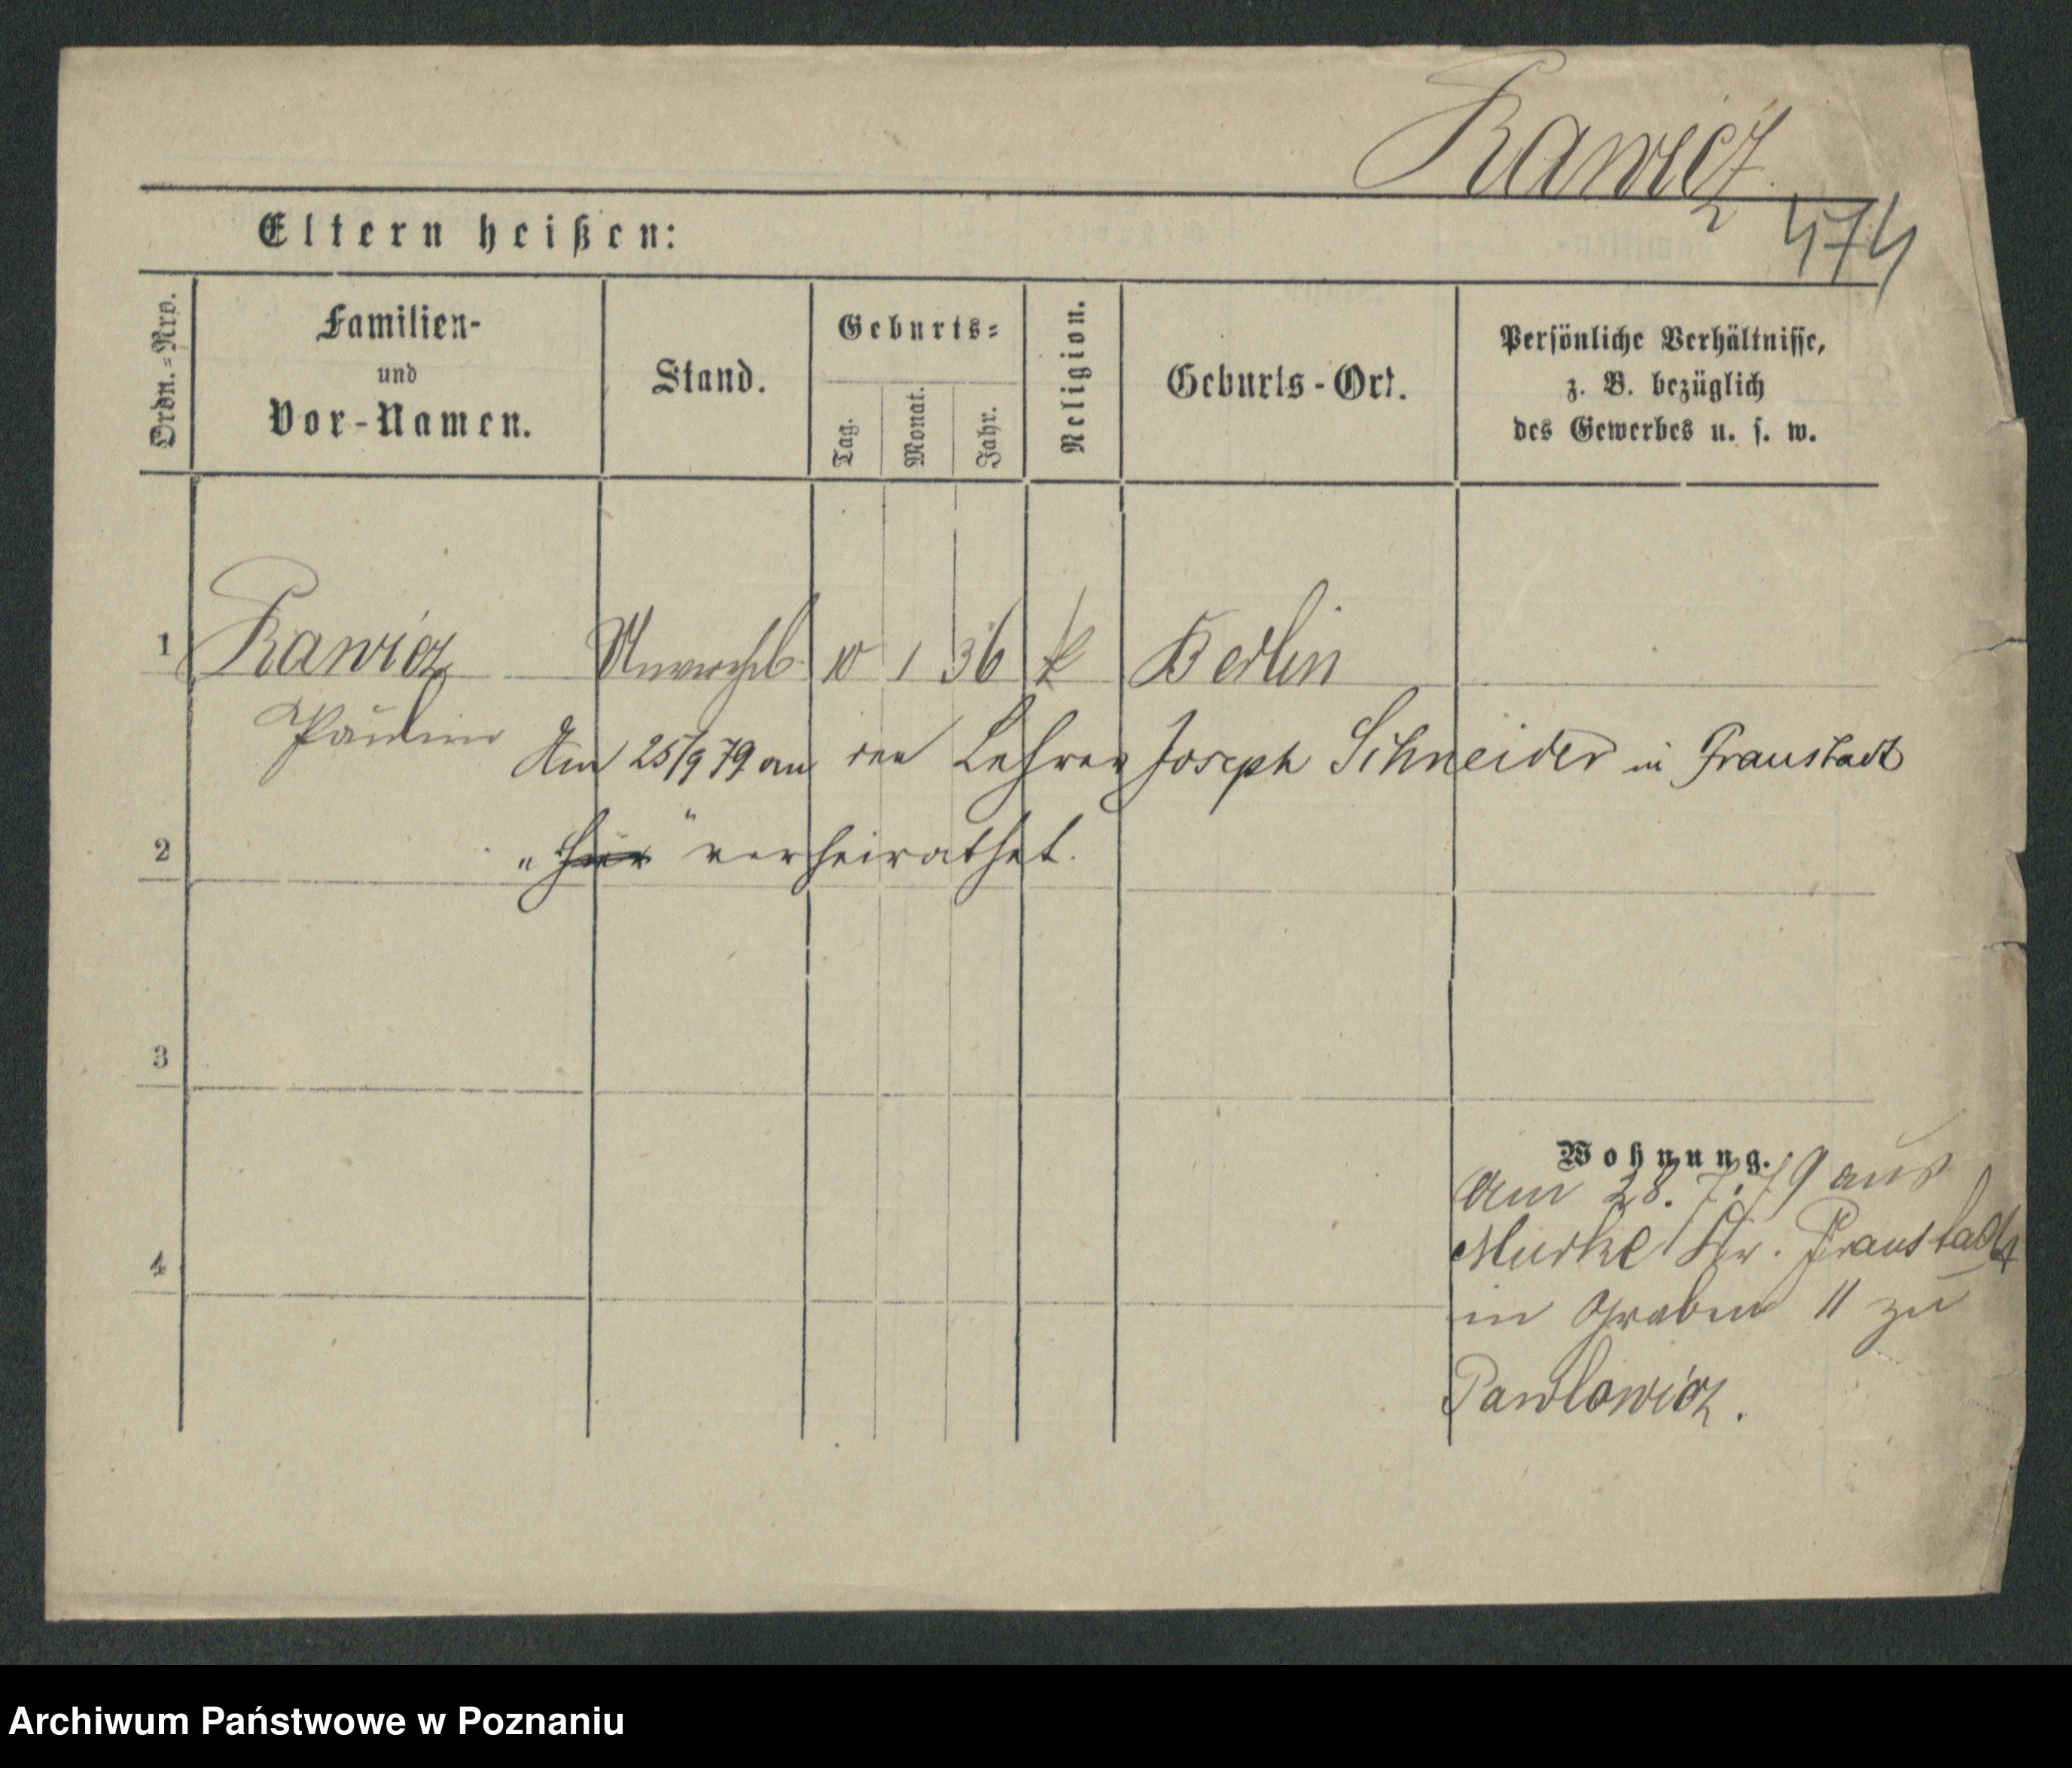 Rawicz
474
Eltern heißen:
Ordn.-Nro.
Familien-
und
Vor-Namen.
Stand.
Geburts-
Tag.
Monat.
Jahr.
Religion.
Geburts-Ort.
Persönliche Verhältnisse,
z. B. bezüglich
des Gewerbes u. s. w.
1 Rawicz Unverehel. 10 1 36 k Berlin
Pauline
Am 25/9 79 an den Lehrer Joseph Schneider in Fraustadt
2
" hier " verheirathet.
3
4
Wohnung.
Am 28. 7. 79 aus
Murke Kr. Fraustadt
in Graben 11 zu
Pawlowicz.
Archiwum Państwowe w Poznaniu